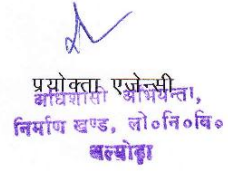 प्रयोक्ता एजेन्सी
अधिशासी अभियन्ता,
निर्माण खण्ड, लो०नि०वि०
अल्मोड़ा